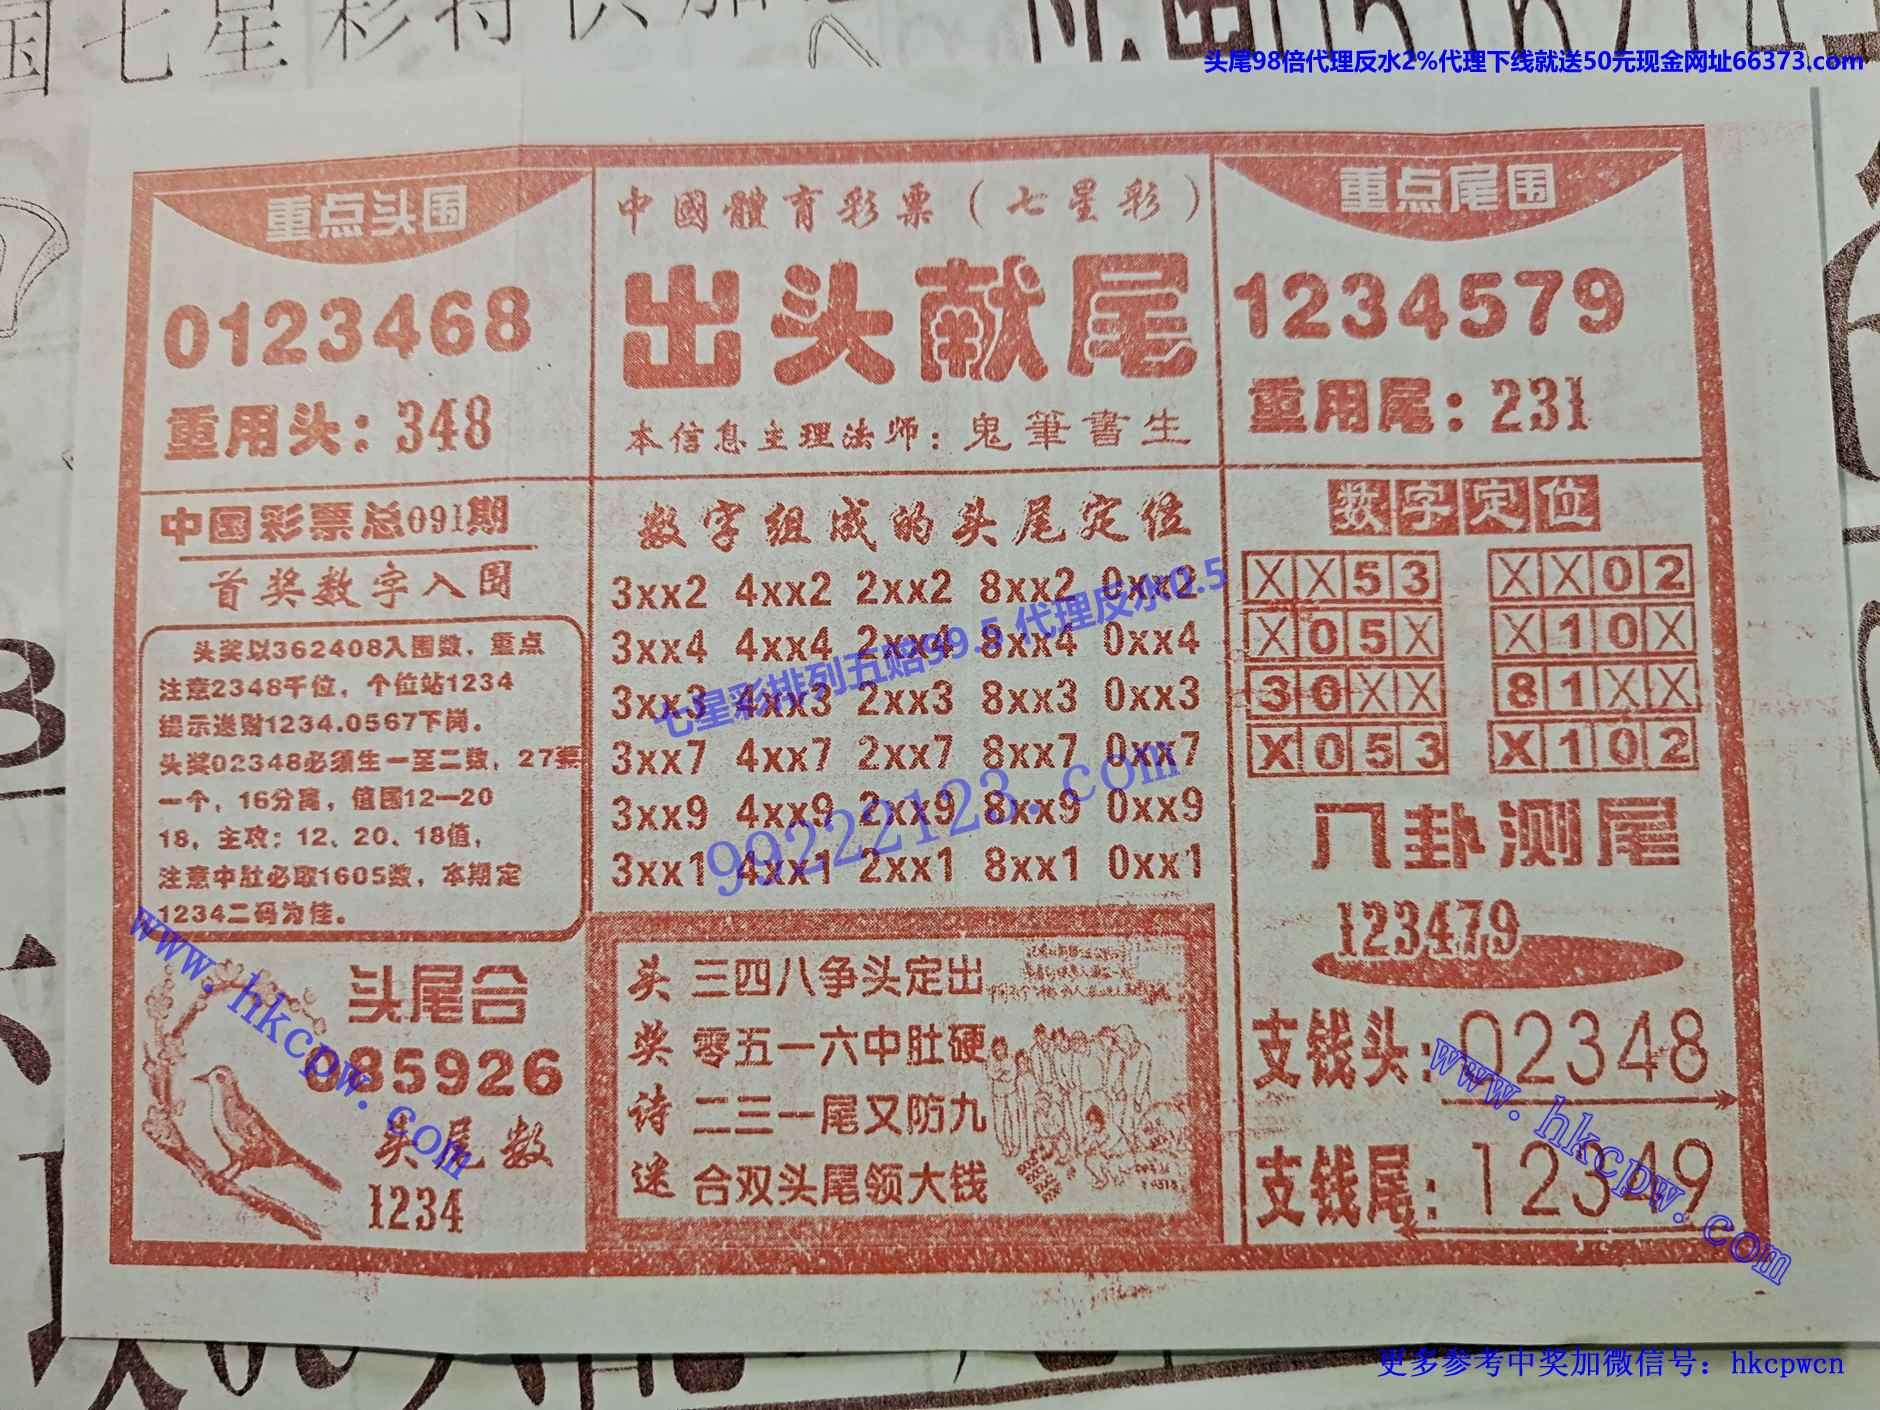 国七星彩特
头尾98倍代理反水2%代理下线就送50元现金网址66373.com
重点头围
0123468
重用头：348
中國體育彩票（七星彩）
出头献尾
本信息主理法师：鬼筆書生
重点尾围
1234579
重用尾：231
中国彩票总091期
首奖数字入围
头奖以362408入围数，重点
注意2348千位，个位站1234
提示送财1234.0567下岗。
头奖02348必须生一至二数，27要
一个，16分离，值围12—20
18，主攻：12、20、18值，
注意中肚必取1605数，本期定
1234二码为佳。
头尾合
085926
头尾数
1234
数字组成的头尾定位
3xx2 4xx2 2xx2 8xx2 0xx2
3xx4 4xx4 2xx4 8xx4 0xx4
3xx3 4xx3 2xx3 8xx3 0xx3
3xx7 4xx7 2xx7 8xx7 0xx7
3xx9 4xx9 2xx9 8xx9 0xx9
3xx1 4xx1 2xx1 8xx1 0xx1
七星彩排列五赔99.5 代理反水0.5
99222123.com
头奖诗迷
三四八争头定出
零五一六中肚硬
二三一尾又防九
合双头尾领大钱
数字定位
XX53 XX02
X05X X10X
30XX 81XX
X053 X102
八卦测尾
123479
支钱头：02348
支钱尾：12349
www.hkcpw.com
www.hkcpw.com
更多参考中奖加微信号：hkcpwcn